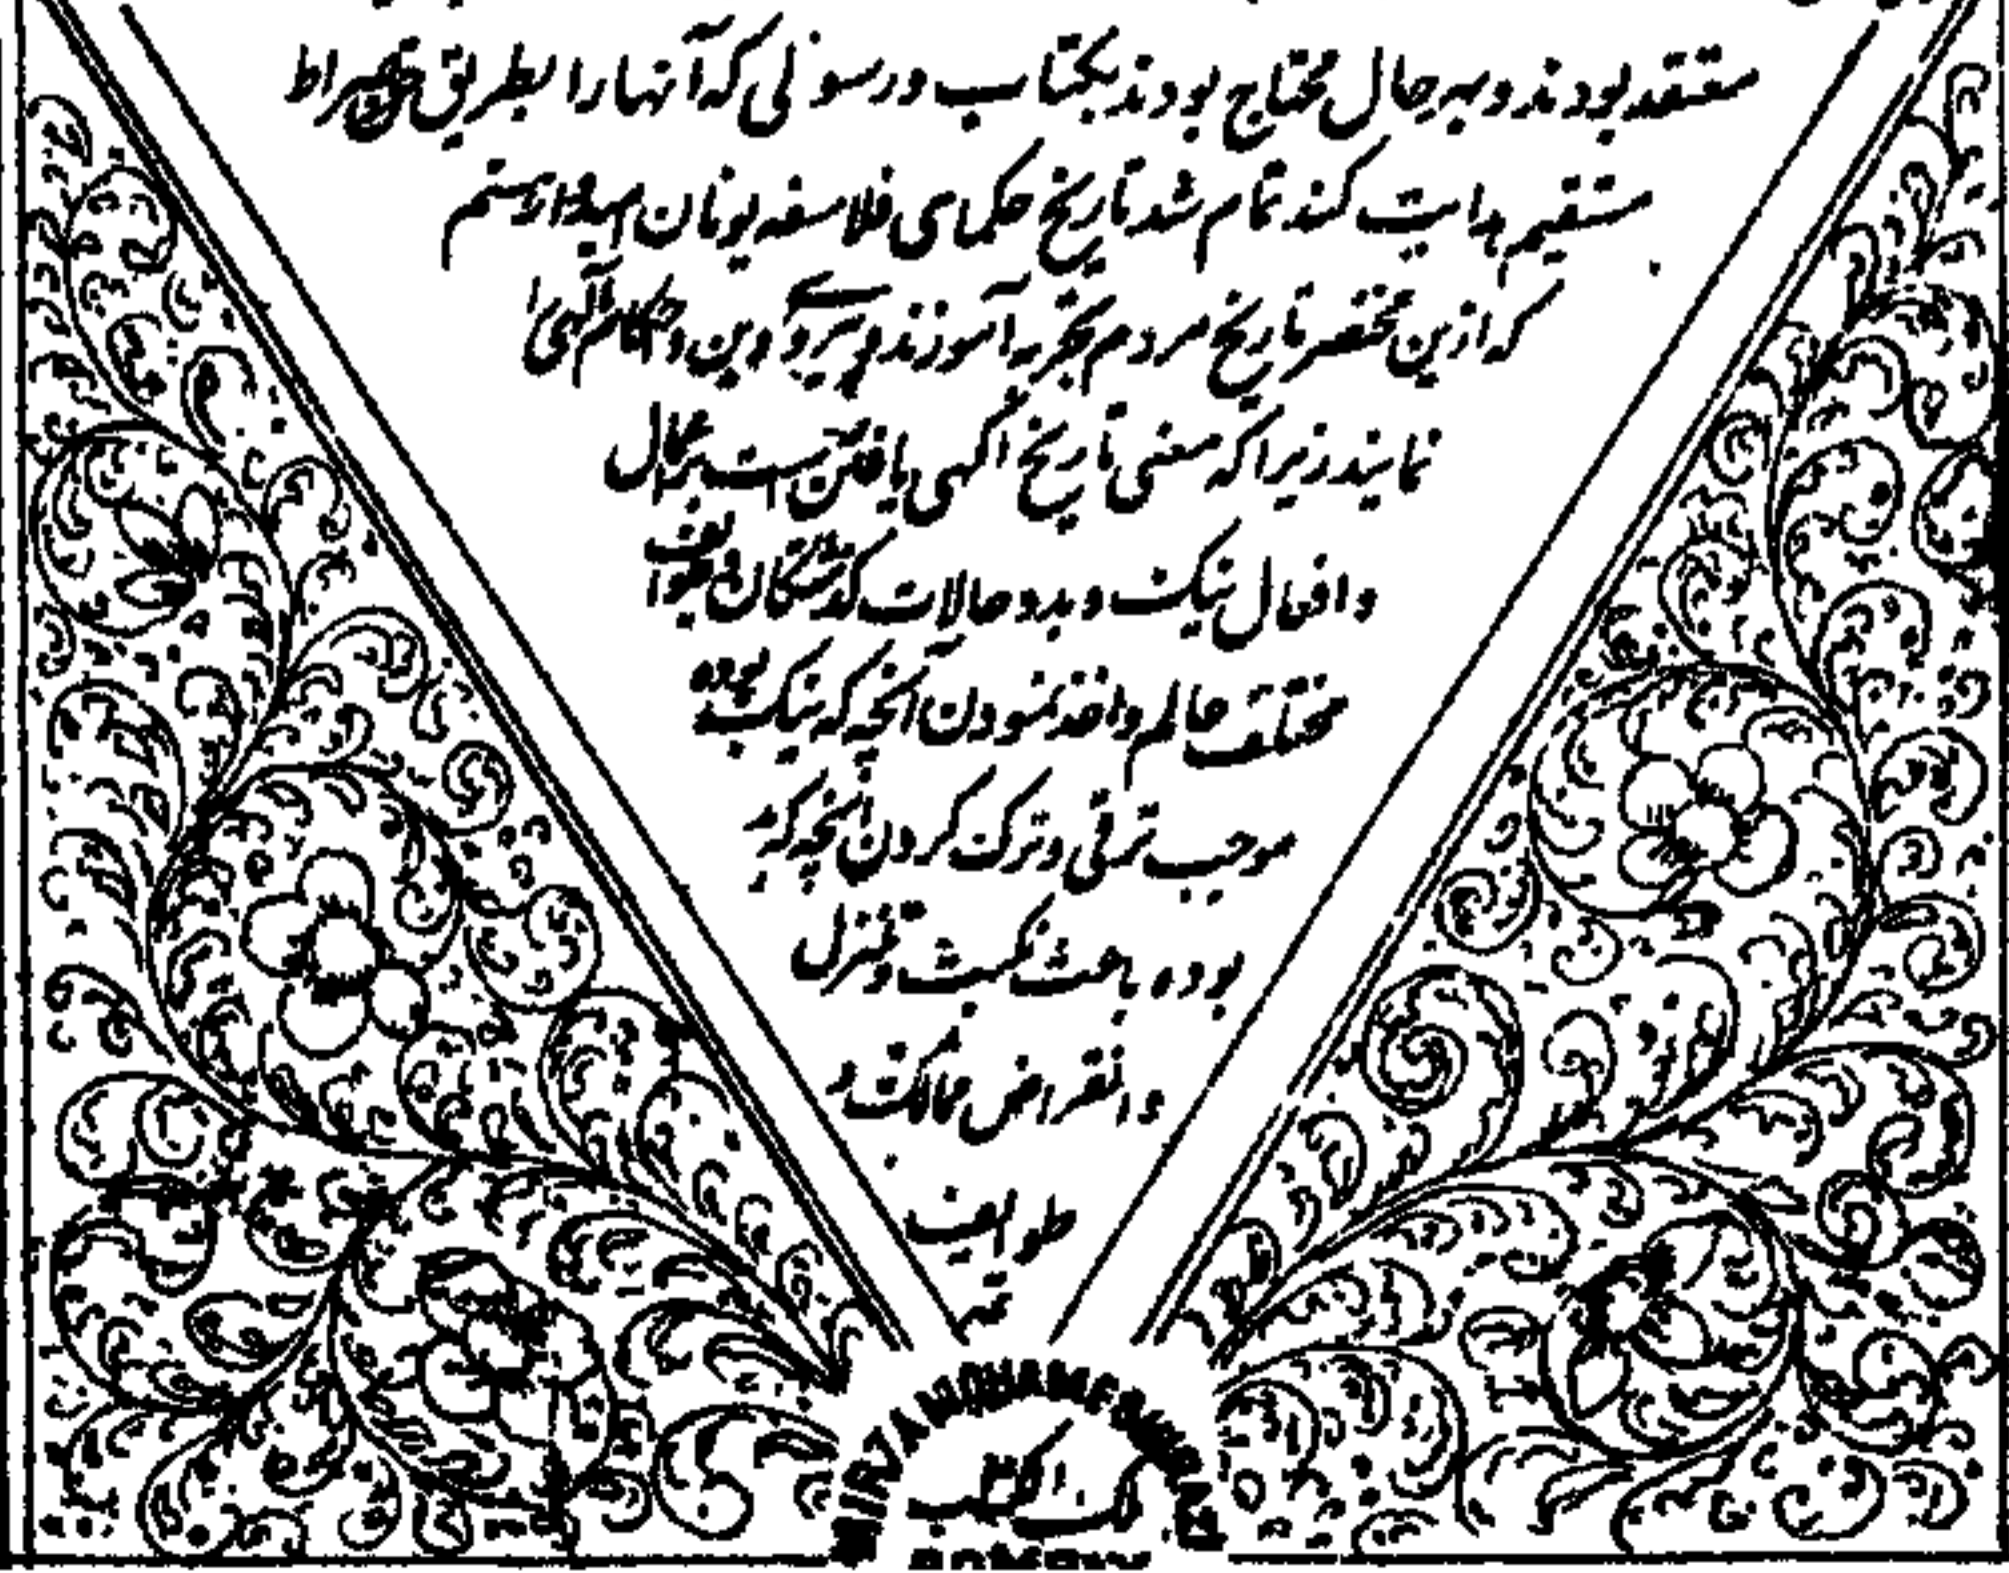 معتقد بودند و بهرحال محتاج بودند بکتاب و رسولی که آنها را بطریق صراط
مستقیم هدایت کند تمام شد تاریخ حکمای فلاسفه یونان امیدوارستم
که ازین مختصر تاریخ مردم تجربه آموزند و پیروی دین و احکام الهی
نمایند زیرا که معنی تاریخ آگهی یافتن است بر اعمال
و افعال نیک و بد و حالات گذشتگان و طوایف
مختلف عالم و اخذ نمودن آنچه که نیک بوده
موجب ترقی و ترک کردن آنچه که بد
بوده باعث نکبت و تنزل
و انقراض ممالک و
طوایف
تم
MIRZA MOHAMED
ملک الکتاب
BOMBAY